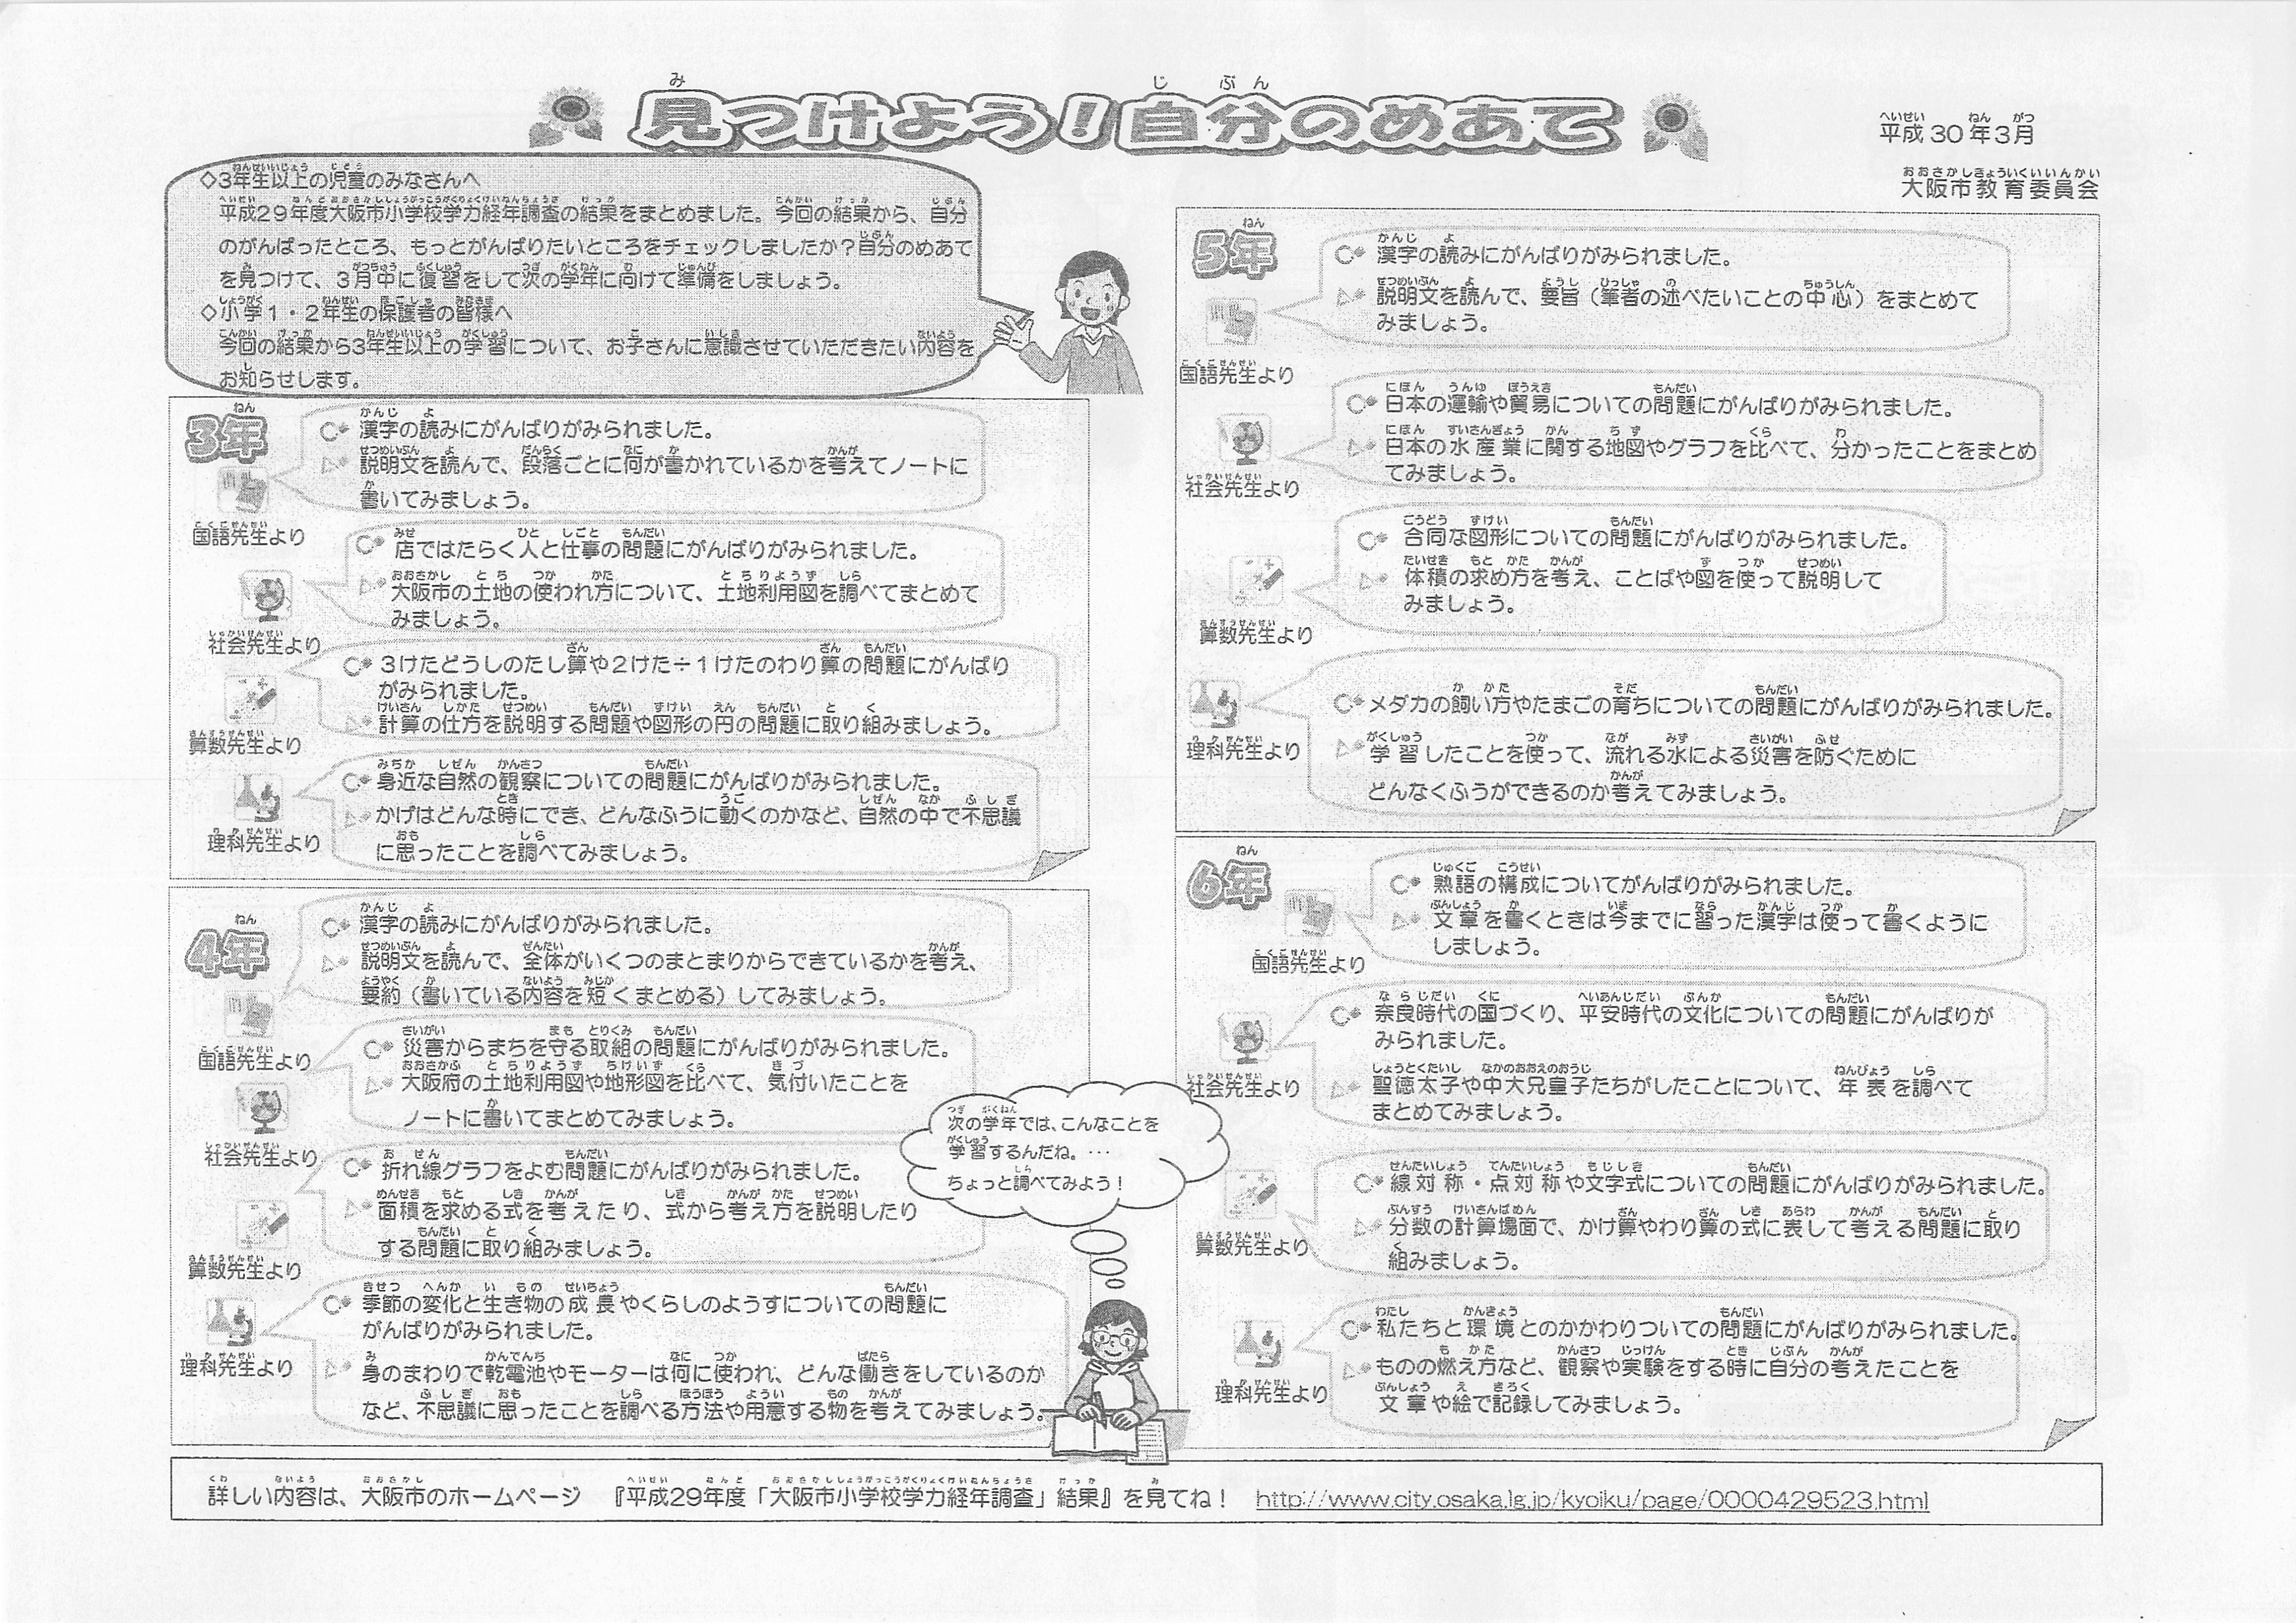 見つけよう！自分のめあて
平成30年3月
大阪市教育委員会
◇3年生以上の児童のみなさんへ
平成29年度大阪市小学校学力経年調査の結果をまとめました。今回の結果から、自分
のがんばったところ、もっとがんばりたいところをチェックしましたか？自分のめあて
を見つけて、3月中に復習をして次の学年に向けて準備をしましょう。
◇小学1・2年生の保護者の皆様へ
今回の結果から3年生以上の学習について、お子さんに意識させていただきたい内容を
お知らせします。
3年
漢字の読みにがんばりがみられました。
説明文を読んで、段落ごとに何が書かれているかを考えてノートに
書いてみましょう。
国語先生より
店ではたらく人と仕事の問題にがんばりがみられました。
大阪市の土地の使われ方について、土地利用図を調べてまとめて
みましょう。
社会先生より
3けたどうしのたし算や2けた÷1けたのわり算の問題にがんばり
がみられました。
計算の仕方を説明する問題や図形の円の問題に取り組みましょう。
算数先生より
身近な自然の観察についての問題にがんばりがみられました。
かげはどんな時にでき、どんなふうに動くのかなど、自然の中で不思議
に思ったことを調べてみましょう。
理科先生より
4年
漢字の読みにがんばりがみられました。
説明文を読んで、全体がいくつのまとまりからできているかを考え、
要約（書いている内容を短くまとめる）してみましょう。
国語先生より
災害からまちを守る取組の問題にがんばりがみられました。
大阪府の土地利用図や地形図を比べて、気付いたことを
ノートに書いてまとめてみましょう。
社会先生より
折れ線グラフをよむ問題にがんばりがみられました。
面積を求める式を考えたり、式から考え方を説明したり
する問題に取り組みましょう。
算数先生より
季節の変化と生き物の成長やくらしのようすについての問題に
がんばりがみられました。
身のまわりで乾電池やモーターは何に使われ、どんな働きをしているのか
など、不思議に思ったことを調べる方法や用意する物を考えてみましょう。
理科先生より
次の学年では、こんなことを
学習するんだね。・・・
ちょっと調べてみよう！
5年
漢字の読みにがんばりがみられました。
説明文を読んで、要旨（筆者の述べたいことの中心）をまとめて
みましょう。
国語先生より
日本の運輸や貿易についての問題にがんばりがみられました。
日本の水産業に関する地図やグラフを比べて、分かったことをまとめ
てみましょう。
社会先生より
合同な図形についての問題にがんばりがみられました。
体積の求め方を考え、ことばや図を使って説明して
みましょう。
算数先生より
メダカの飼い方やたまごの育ちについての問題にがんばりがみられました。
学習したことを使って、流れる水による災害を防ぐために
どんなくふうができるのか考えてみましょう。
理科先生より
6年
熟語の構成についてがんばりがみられました。
文章を書くときは今までに習った漢字は使って書くように
しましょう。
国語先生より
奈良時代の国づくり、平安時代の文化についての問題にがんばりが
みられました。
聖徳太子や中大兄皇子たちがしたことについて、年表を調べて
まとめてみましょう。
社会先生より
線対称・点対称や文字式についての問題にがんばりがみられました。
分数の計算場面で、かけ算やわり算の式に表して考える問題に取り
組みましょう。
算数先生より
私たちと環境とのかかわりついての問題にがんばりがみられました。
ものの燃え方など、観察や実験をする時に自分の考えたことを
文章や絵で記録してみましょう。
理科先生より
詳しい内容は、大阪市のホームページ 『平成29年度「大阪市小学校学力経年調査」結果』を見てね！ http://www.city.osaka.lg.jp/kyoiku/page/0000429523.html